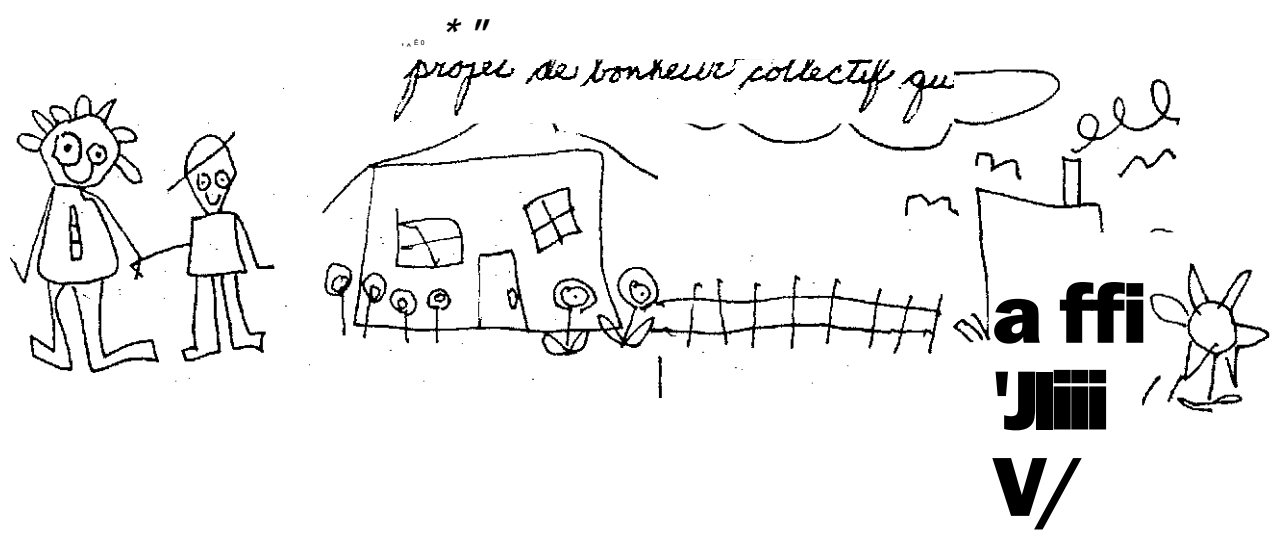 * "
projet de bonheur collectif qu
a ffi
'Jliii
V/